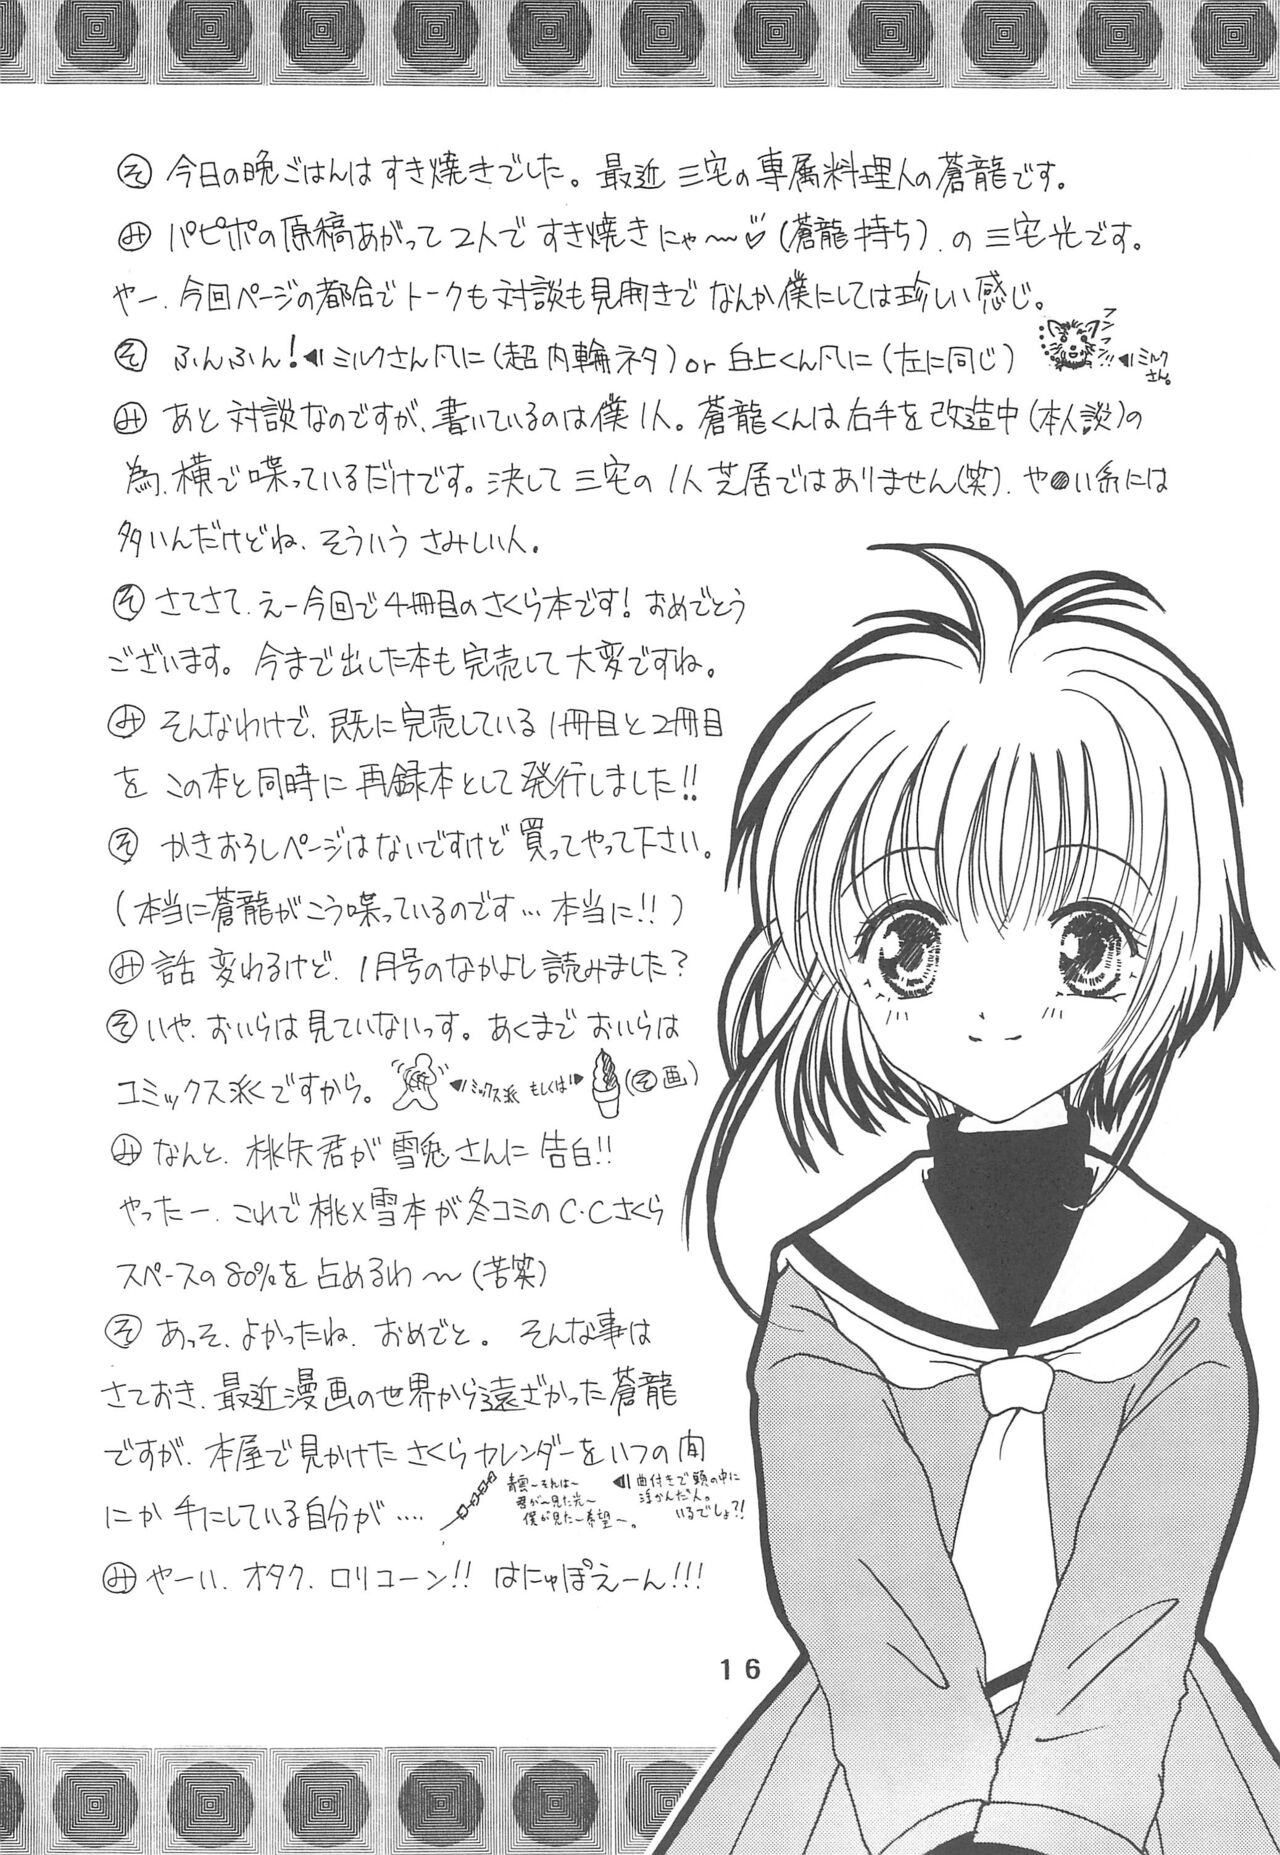 そ 今日の晩ごはんはすき焼きでした。最近 三宅の専属料理人の蒼龍です。
み パピポの原稿あがって2人ですき焼きにゃ〜♡(蒼龍持ち).の三宅光です。
やー、今回ページの都合でトークも対談も見開きでなんか僕にしては珍しい感じ。
そ ふんふん!◀ミルクさん風に(超内輪ネタ)or白上くん風に(左に同じ)
◀ミルクさん。
み あと対談なのですが、書いているのは僕1人。蒼龍くんは右手を改造中(本人談)の
為、横で喋っているだけです。決して三宅の1人芝居ではありません(笑).や●い系には
多いんだけどね、そういうさみしい人。
そ さてさて、えー今回で4冊目のさくら本です!おめでとう
ございます。今まで出した本も完売して大変ですね。
み そんなわけで、既に完売している1冊目と2冊目
をこの本と同時に再録本として発行しました!!
そ かきおろしページはないですけど買ってやって下さい。
(本当に蒼龍がこう喋っているのです…本当に!!)
み 話変わるけど、1月号のなかよし読みました?
そ いや、おいらは見ていないっす。あくまでおいらは
コミックス派くですから。◀ミックス派 もしくは▶(そ画)
み なんと、桃矢君が雪兎さんに告白!!
やったー、これで桃×雪本が冬コミのC・Cさくら
スペースの80%を占めるわ〜(苦笑)
そ あっそ、よかったね、おめでと。そんな事は
さておき、最近漫画の世界から遠ざかった蒼龍
ですが、本屋で見かけたさくらカレンダーをいつの間
にか手にしている自分が….
青雲〜それは〜
君が〜見た光〜
僕が見た〜希望〜。
◀曲付きで頭の中に
浮かんだ人。
いるでしょ?!
み やーい、オタク、ロリコーン!! はにゃぽえーん!!!
16